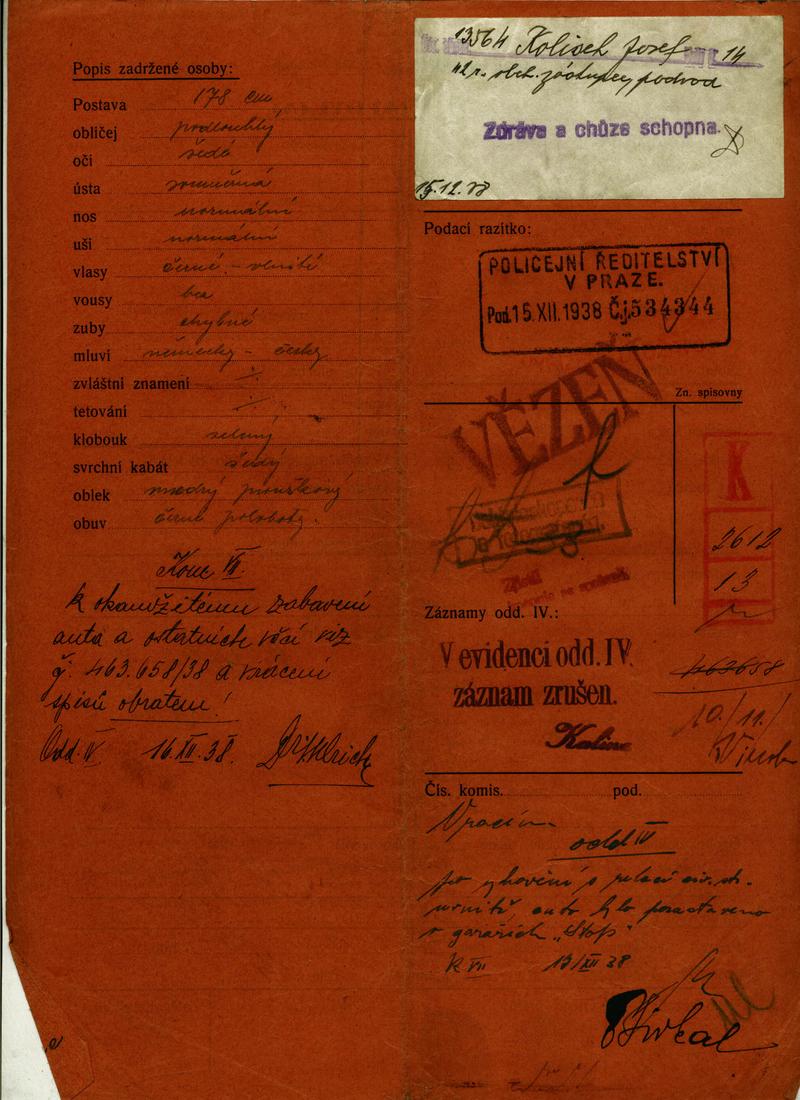 Popis zadržené osoby:
Postava 178 cm
obličej podlouhlý
oči šedé
ústa souměrná
nos normální
uši normální
vlasy černé - vlnité
vousy bez
zuby chybné
mluví německy - česky
zvláštní znamení ./.
tetování ./.
klobouk zelený
svrchní kabát šedý
oblek modrý proužkový
obuv černé polobotky.
Kom VII
k okamžitému zabavení
auta a ostatních věcí viz
č. 463.658/38 a vrácení
spisů obratem!
Odd. IV 16.XII.38. Dittdrich
13564 Kolisch Josef 14
42 r. obch. zástupce, podvod
Zdráva a chůze schopna.
15.12.38
Podací razítko:
POLICEJNÍ ŘEDITELSTVÍ
V PRAZE.
Pod. 15.XII.1938 Čj. 534344
Zn. spisovny
VĚZEŇ
K
2612
13
Záznamy odd. IV.:
V evidenci odd. IV.
záznam zrušen.
463658
10./11./
Čís. komis. pod.
Vracím
odd IV
po vyhovění s relací civ. str.
auto bylo postaveno
v garážích „Stop"
K VII 17/XII 38